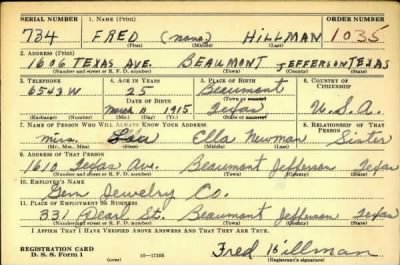 SERIAL NUMBER 1. NAME (Print) ORDER NUMBER
734 FRED (none) HILLMAN 1035
(First) (Middle) (Last)
2. ADDRESS (Print)
1606 TEXAS AVE. BEAUMONT JEFFERSON TEXAS
(Number and street or R. F. D. number) (Town) (County) (State)
3. TELEPHONE 4. AGE IN YEARS 5. PLACE OF BIRTH 6. COUNTRY OF CITIZENSHIP
6543W 25 Beaumont
DATE OF BIRTH (Town or county)
March 11 1915 Texas U.S.A.
(Exchange) (Number) (Mo.) (Day) (Yr.) (State or country)
7. NAME OF PERSON WHO WILL ALWAYS KNOW YOUR ADDRESS 8. RELATIONSHIP OF THAT PERSON
Miss Ella Newman Sister
(Mr., Mrs., Miss) (First) (Middle) (Last)
9. ADDRESS OF THAT PERSON
1610 Texas Ave. Beaumont Jefferson Texas
(Number and street or R. F. D. number) (Town) (County) (State)
10. EMPLOYER'S NAME
Gem Jewelry Co.
11. PLACE OF EMPLOYMENT OR BUSINESS
331 Pearl St. Beaumont Jefferson Texas
(Number and street or R. F. D. number) (Town) (County) (State)
I AFFIRM THAT I HAVE VERIFIED ABOVE ANSWERS AND THAT THEY ARE TRUE.
REGISTRATION CARD
D. S. S. Form 1 16—17105 Fred Hillman
(Registrant's signature)